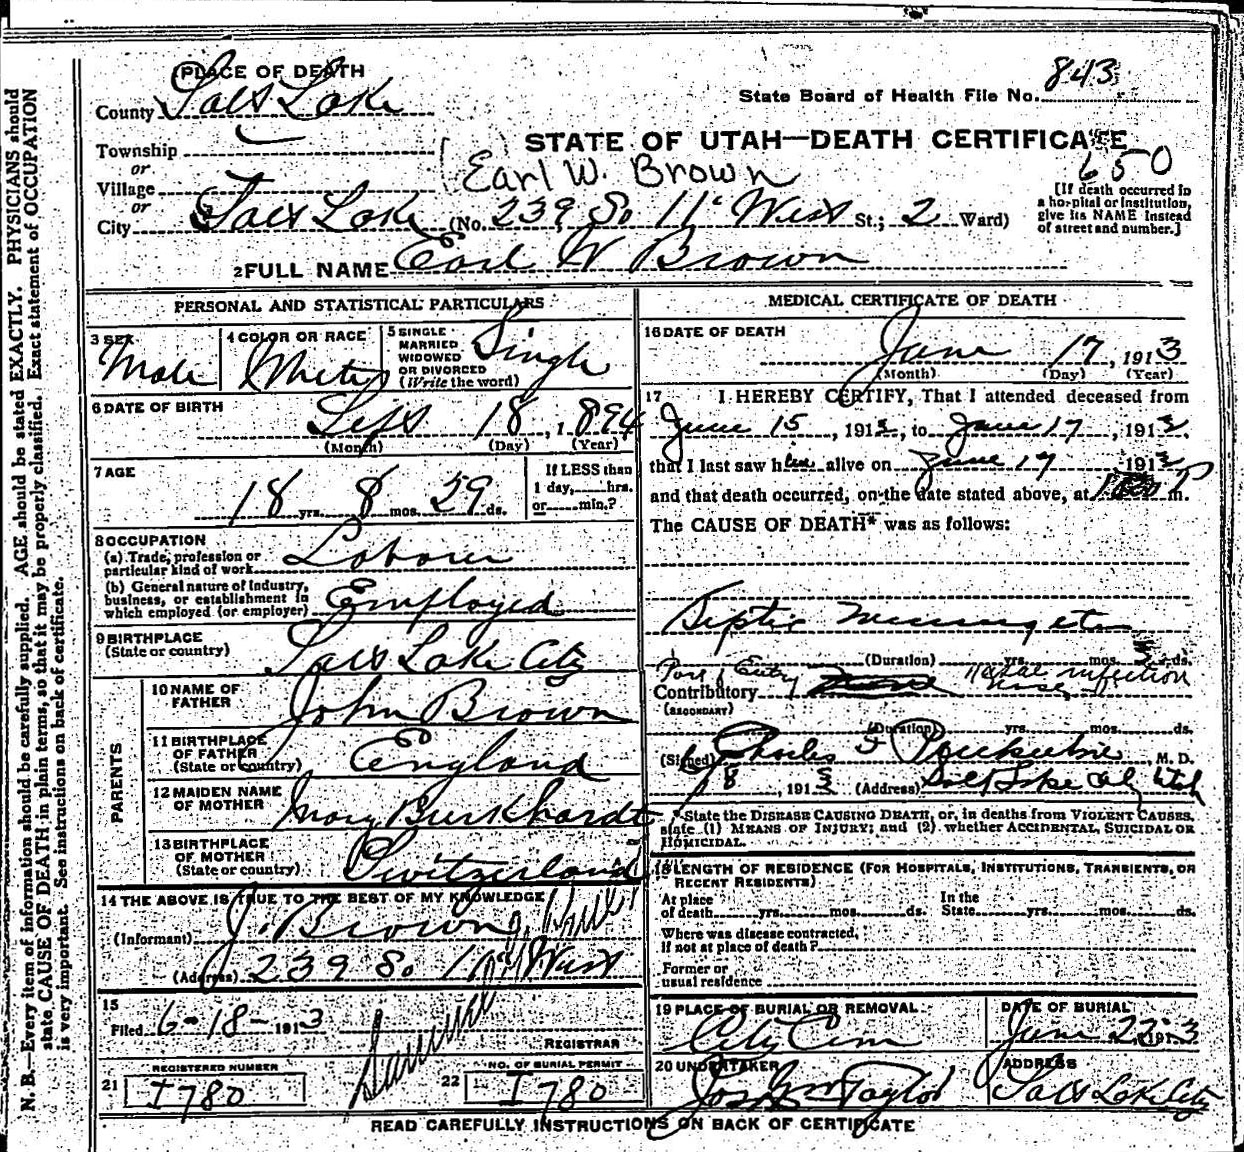 PLACE OF DEATH
County Salt Lake
State Board of Health File No. 843
STATE OF UTAH—DEATH CERTIFICATE
Township
or
Village
or
Earl W. Brown
650
[If death occurred in
a hospital or institution,
give its NAME instead
of street and number.]
City Salt Lake (No. 239 So 11" West St.; 2 Ward)
2 FULL NAME Earl W Brown
PERSONAL AND STATISTICAL PARTICULARS
3 SEX Male
4 COLOR OR RACE White
5 SINGLE MARRIED WIDOWED OR DIVORCED (Write the word) Single
6 DATE OF BIRTH Sept 18, 1894
(Month) (Day) (Year)
7 AGE 18 yrs. 8 mos. 29 ds.
If LESS than
1 day, hrs.
or min.?
8 OCCUPATION
(a) Trade, profession or
particular kind of work Laborer
(b) General nature of Industry,
business, or establishment in
which employed (or employer) Employed
9 BIRTHPLACE
(State or country) Salt Lake City
PARENTS
10 NAME OF
FATHER John Brown
11 BIRTHPLACE
OF FATHER
(State or country) England
12 MAIDEN NAME
OF MOTHER Mary Burkhardt
13 BIRTHPLACE
OF MOTHER
(State or country) Switzerland
14 THE ABOVE IS TRUE TO THE BEST OF MY KNOWLEDGE
(Informant) J. Brown
(Address) 239 So 11" West
15
Filed 6-18-1913
REGISTRAR
REGISTERED NUMBER
21 I780
NO. OF BURIAL PERMIT
22 I780
MEDICAL CERTIFICATE OF DEATH
16 DATE OF DEATH
June 17, 1913
(Month) (Day) (Year)
17 I HEREBY CERTIFY, That I attended deceased from
June 15, 1913, to June 17, 1913,
that I last saw him alive on June 17 1913
and that death occurred, on the date stated above, at P m.
The CAUSE OF DEATH* was as follows:
Septic Meningitis
(Duration) yrs. mos. ds.
Port of Entry Nasal infection
Contributory nose
(SECONDARY)
(Duration) yrs. mos. ds.
(Signed) Charles M. D.
18, 1913 (Address) Salt Lake City Utah
*State the DISEASE CAUSING DEATH, or, in deaths from VIOLENT CAUSES,
state (1) MEANS OF INJURY; and (2) whether ACCIDENTAL, SUICIDAL OR
HOMICIDAL.
18 LENGTH OF RESIDENCE (FOR HOSPITALS, INSTITUTIONS, TRANSIENTS, OR
RECENT RESIDENTS)
At place
of death yrs. mos. ds.
In the
State yrs. mos. ds.
Where was disease contracted,
if not at place of death?
Former or
usual residence
19 PLACE OF BURIAL OR REMOVAL City Cem
DATE OF BURIAL June 22, 1913
20 UNDERTAKER Jos Wm Taylor
ADDRESS Salt Lake City
READ CAREFULLY INSTRUCTIONS ON BACK OF CERTIFICATE
N. B.—Every item of information should be carefully supplied. AGE should be stated EXACTLY. PHYSICIANS should
state CAUSE OF DEATH in plain terms, so that it may be properly classified. Exact statement of OCCUPATION
is very important. See instructions on back of certificate.